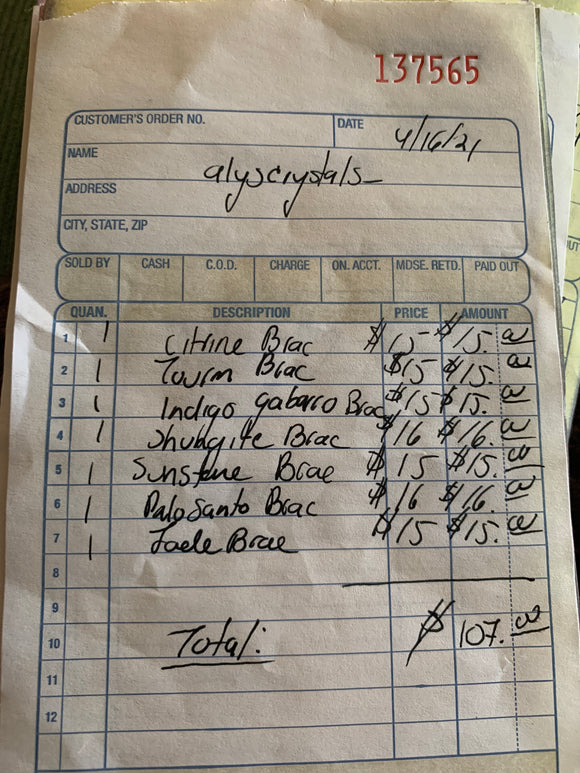 137565
CUSTOMER'S ORDER NO. DATE 4/16/21
NAME alyscrystals
ADDRESS
CITY, STATE, ZIP
SOLD BY CASH C.O.D. CHARGE ON. ACCT. MDSE. RETD. PAID OUT
QUAN. DESCRIPTION PRICE AMOUNT
1 1 Citrine Brac $15 $15. 00
2 1 Tourm Brac $15 $15. 00
3 1 Indigo gabbro Brac $15 $15. 00
4 1 Shungite Brac $16 $16. 00
5 1 Sunstone Brac $15 $15. 00
6 1 Palo Santo Brac $16 $16. 00
7 1 Jade Brac $15 $15. 00
8
9
10 Total: $107. 00
11
12